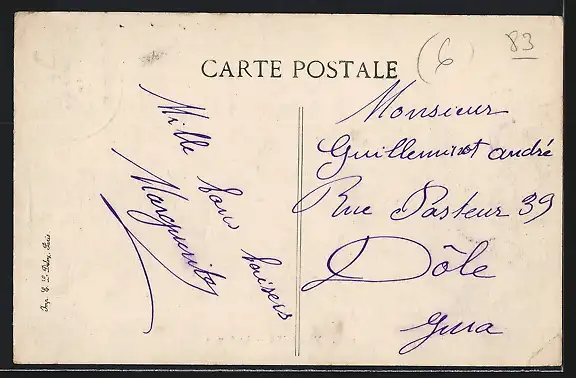 CARTE POSTALE
(6
83
Mille bons baisers
Marguerite
Monsieur
Guilleminot andré
Rue Pasteur 39
Dôle
Jura